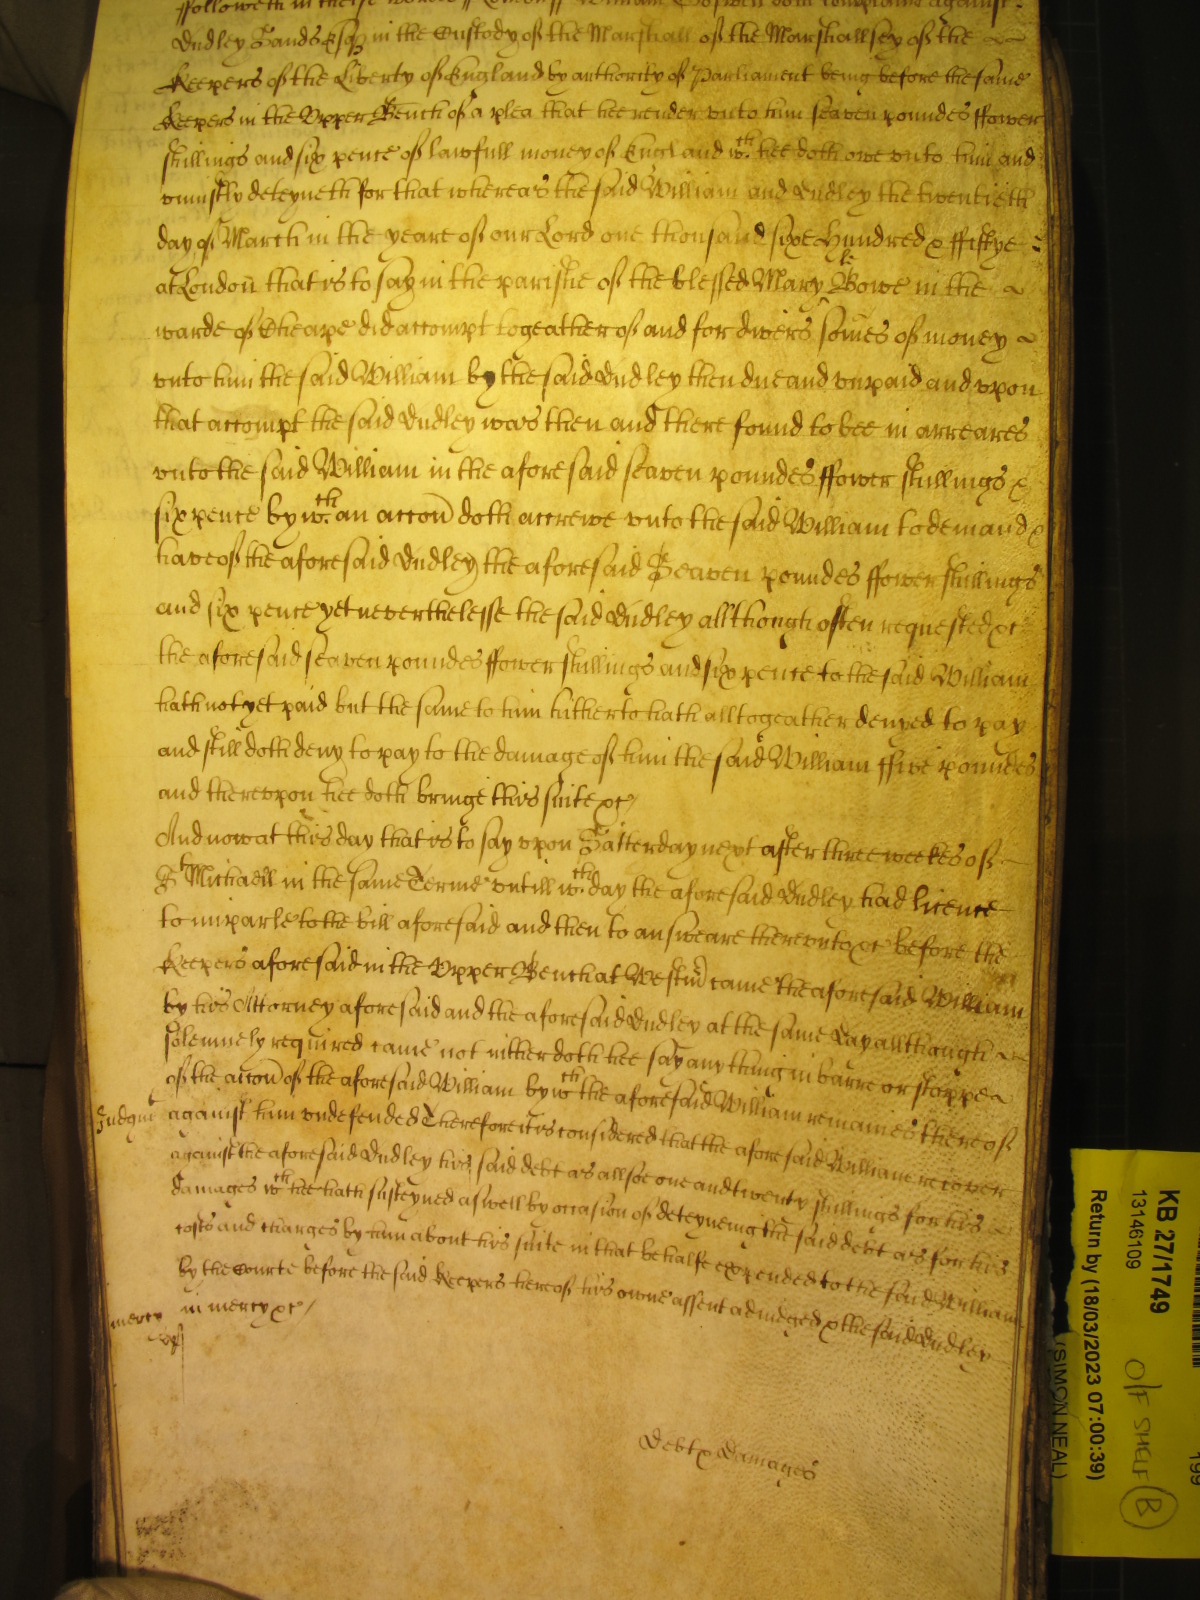 ffolloweth in theise wordes ss London ss William doth complaine against
Dudley Sands Esqr in the Custody of the Marshall of the Marshallsey of the
Keepers of the Liberty of England by authority of Parliament being before the same
Keepers in the Vpper Bench of a plea that hee render vnto him seaven poundes ffower
shillings and six pence of lawfull money of England wth. hee doth owe vnto him and
vniustly deteyneth for that whereas the said William and Dudley the twentieth
day of March in the yeare of our Lord one thousand sixe Hundred & ffiftye
at London that is to say in the parishe of the blessed Mary Bowe in the
warde of Cheape did accompt togeather of and for divers somes of money
vnto him the said William by the said Dudley then due and vnpaid and vpon
that accompt the said Dudley was then and there found to bee in arreares
vnto the said William in the aforesaid seaven poundes ffower shillings &
six pence by wth. an accon doth accrewe vnto the said William to demand &
have of the aforesaid Dudley the aforesaid Seaven poundes ffower shillings
and six pence yet neverthelesse the said Dudley allthough often requested &c
the aforesaid seaven poundes ffower shillings and six pence to the said William
hath not yet paid but the same to him hitherto hath alltogeather denyed to pay
and still doth deny to pay to the damage of him the said William ffive poundes
and therevpon hee doth bringe this suite &c/
And now at this day that is to say vpon Satterday next after three weekes of
St Michaell in the same Terme vntill wth. day the aforesaid Dudley had licence
to imparle to the bill aforesaid and then to answeare therevnto &c before the
Keepers aforesaid in the Vpper Bench at Westmr came the aforesaid William
by his Attorney aforesaid and the aforesaid Dudley at the same day allthough
solemnely required came not nither doth hee say any thing in barre or stoppe
of the accon of the aforesaid William by wth the aforesaid William remaines thereof
Judgmt against him vndefended Therefore it is considered that the aforesaid William recover
against the aforesaid Dudley his said debt as allsoe one and twenty shillings for his
damages wth hee hath susteyned aswell by occasion of deteyneing the said debt as for his
costs and charges by him about his suite in that behalfe expended to the said William
by the Courte before the said Keepers hereof his owne assent adiudged & the said Dudley
mercy in mercy &c/
Debt & Damages
KB 27/1749
13146109
Return by (18/03/2023 07:00:39)
(SIMON NEAL)
O/F SHELF B
199